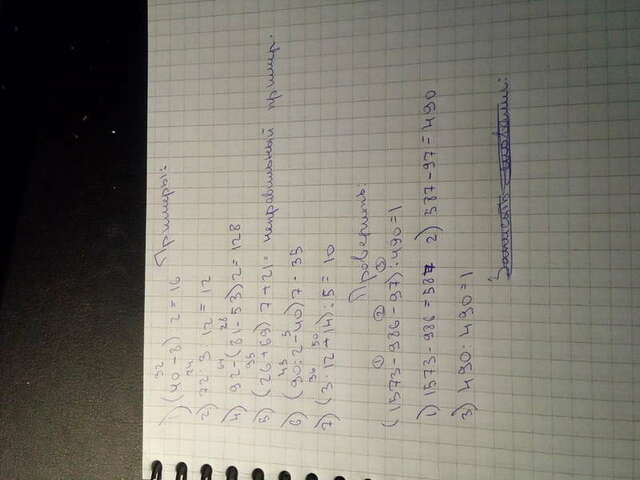 Примеры:
32
1) (40-8) 2 = 16
24
2) 72 : 3 12 = 12
64 28
4) 92-(81-53) 2 = 128
95
5) (26+69) 7+21= неправильный пример.
45 5
6) (90:2-40) 7 = 35
36 50
7) (3·12+14):5=10
Проверить
① ② ③
(1573-986-97):490=1
1) 1573-986=587 2) 587-97=490
3) 490:490=1